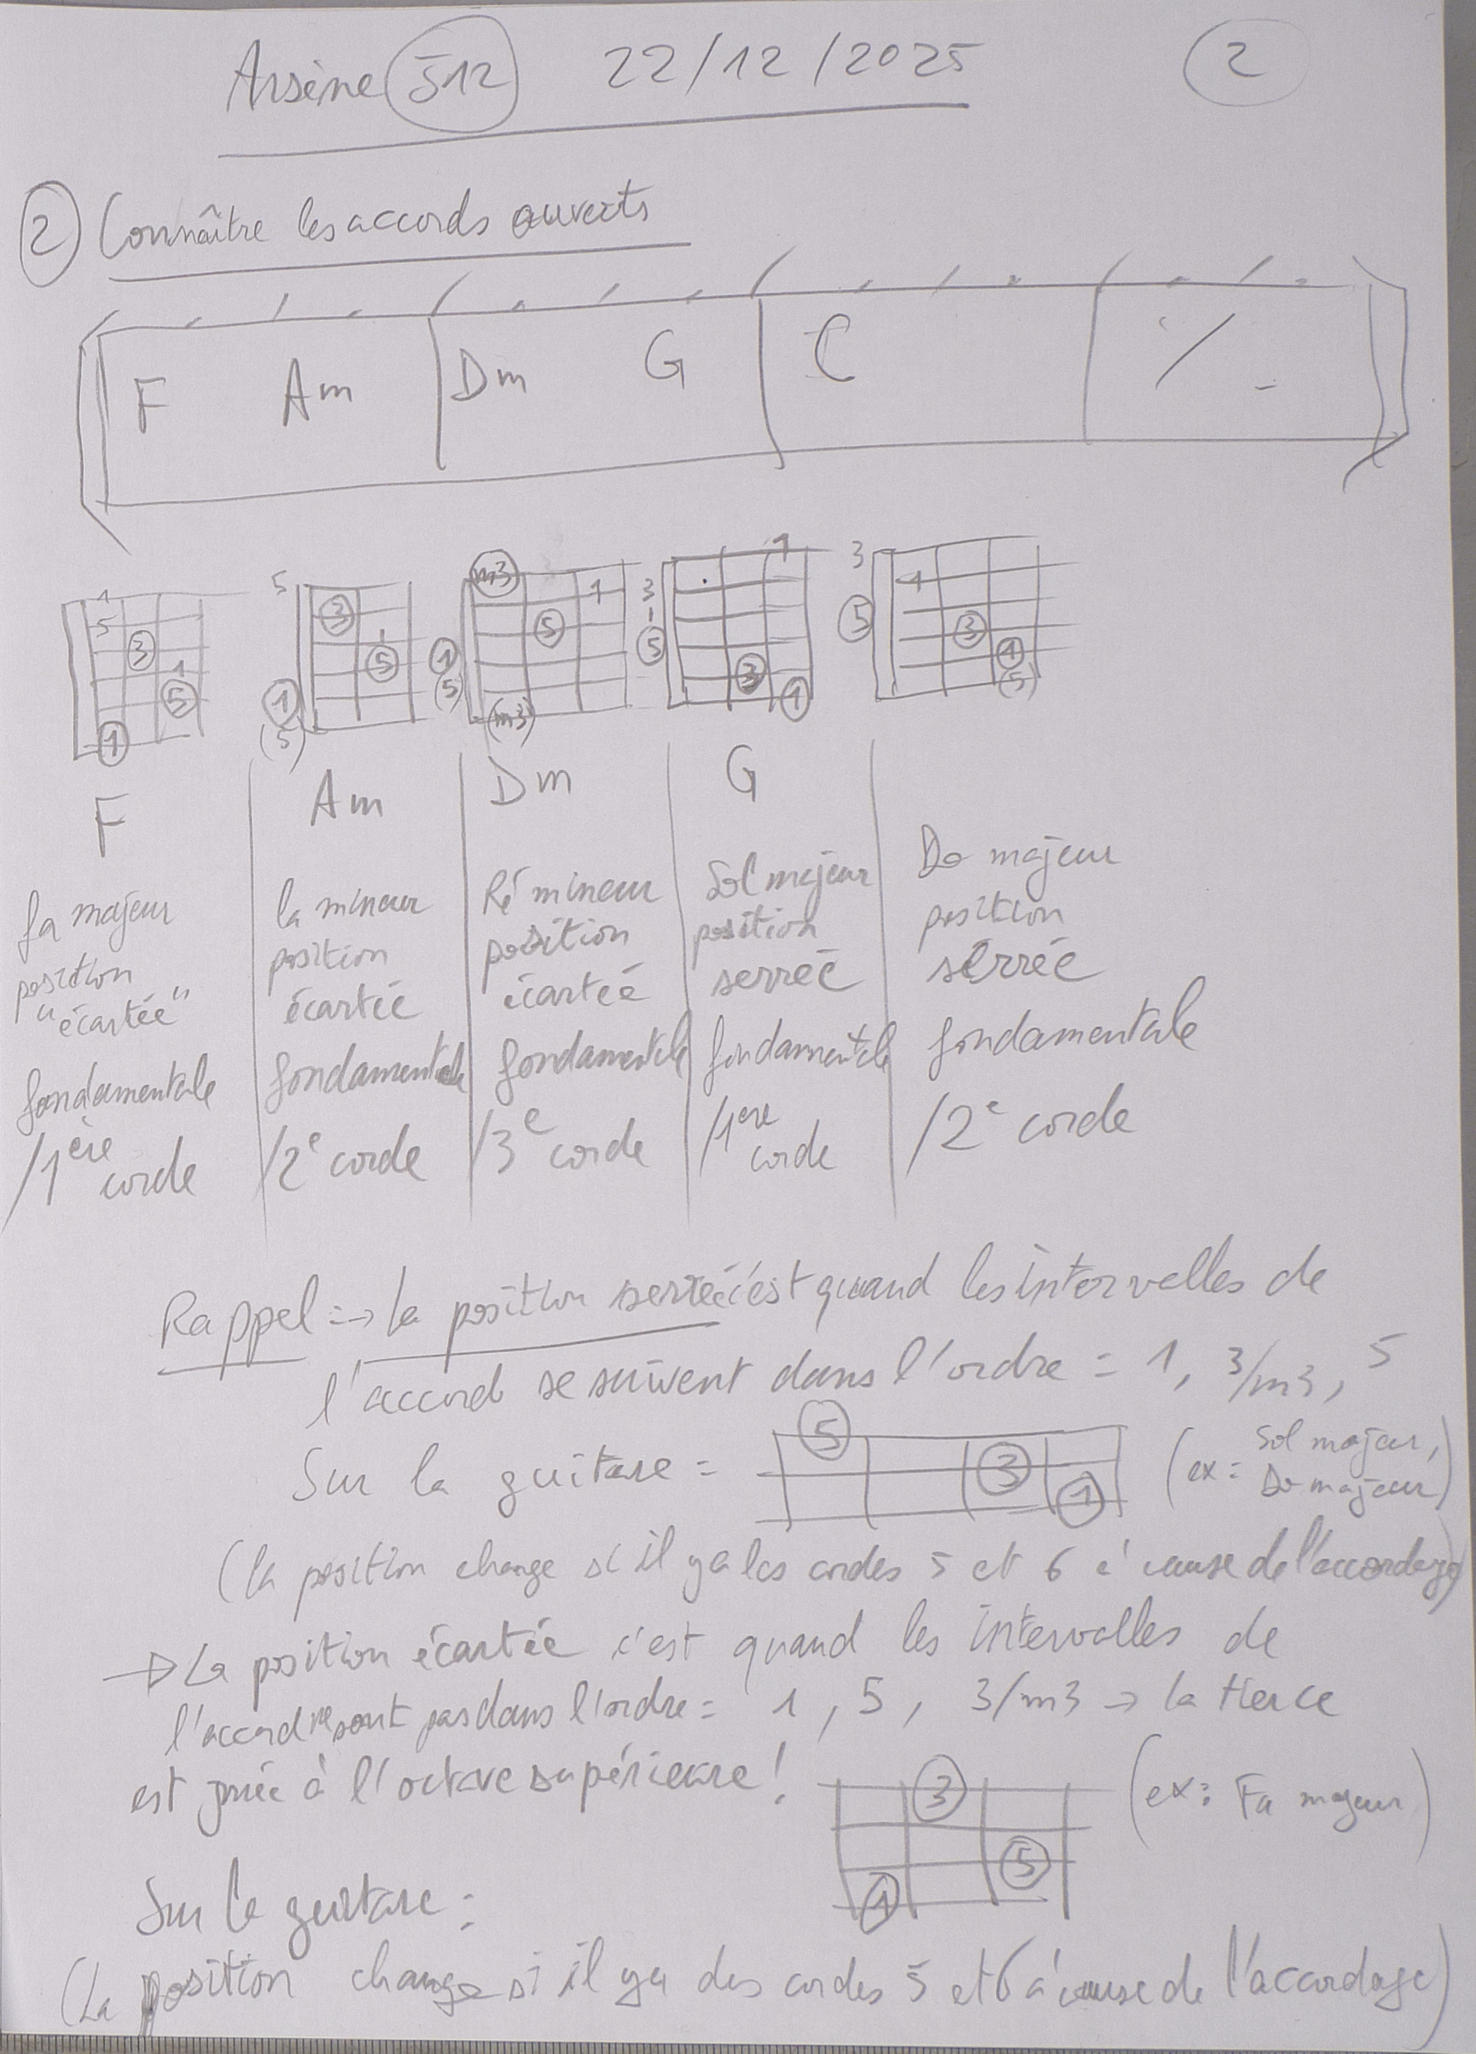 Arsène 512 22/12/2025 2
2 Connaître les accords ouverts
F Am Dm G C ٪
1 5 3 1 5 1
5 3 5 1 (5)
m3 1 5 1 (5) (m3)
1 3 1 5 3 1
3 1 5 3 1 (5)
F Am Dm G
fa majeur position "écartée" fondamentale /1ère corde
la mineur position écartée fondamentale /2e corde
Ré mineur position écartée fondamentale /3e corde
Sol majeur position serrée fondamentale /1ere corde
Do majeur position serrée fondamentale /2e corde
Rappel => la position serrée c'est quand les intervalles de
l'accord se suivent dans l'ordre = 1, 3/m3, 5
Sur la guitare = 5 3 1 (ex = Sol majeur, Do majeur)
(la position change si il y a les cordes 5 et 6 à cause de l'accordage)
→ La position écartée c'est quand les intervalles de
l'accord ne sont pas dans l'ordre = 1, 5, 3/m3 → la tierce
est jouée à l'octave supérieure!
3 5 1 (ex: Fa majeur)
Sur la guitare :
(La position change si il y a des cordes 5 et 6 à cause de l'accordage)